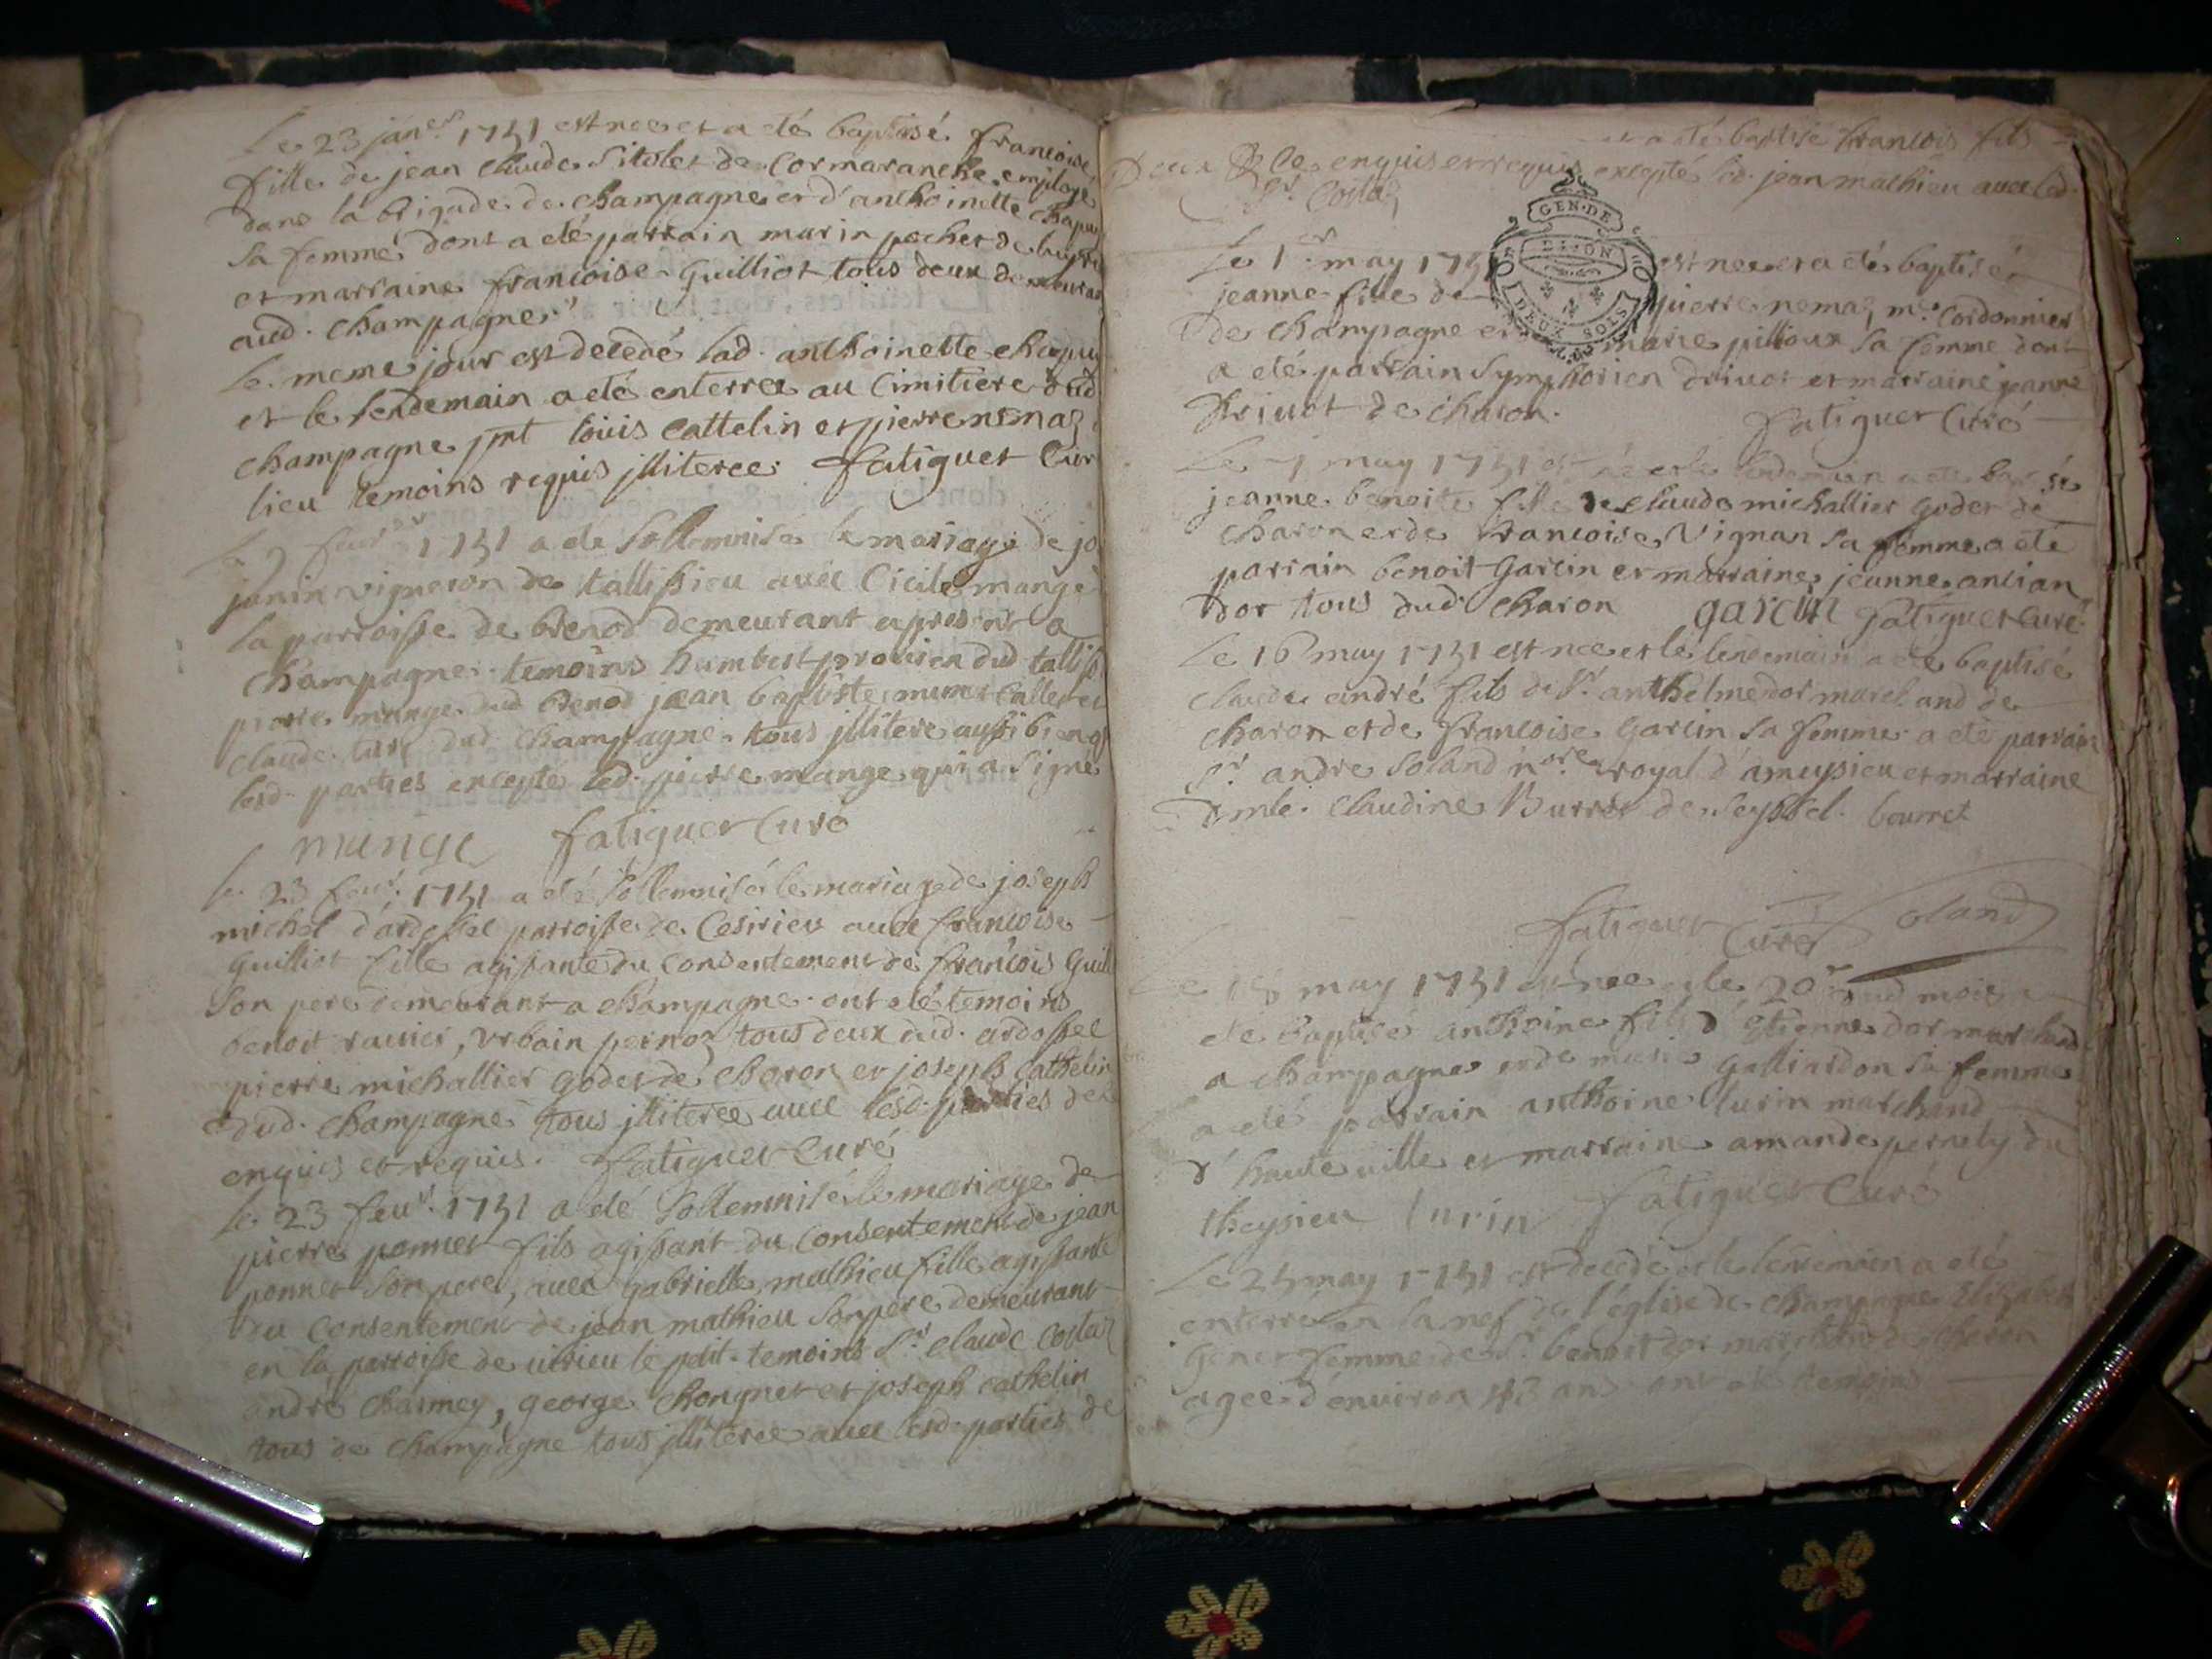 Le 23 janer 1751 est nee et a eté baptisé francoise
fille de jean claude Sitolet de Cormaranche employé
dans la brigade de champagne et d'anthoinette chapu
sa femme dont a eté parrain marin pochet de
et marraine francoise Guilliot tous deux demeuran
aud. champagne
le meme jour est decedé lad. anthoinette chapu
et le lendemain a eté enterree au Cimitiere dud
champagne pnt loüis Cattelin et pierre nemaz
lieu temoins requis jlliteree. fatiguet Cur
Le 9 feur 1751 a eté Sollemnisé le mariage de jo
janin vigneron de tallissieu avec Cicile mange
la parroisse de brenod demeurant apresent a
Champagne. temoins humbert provien dud talliss
pierre mange dud brenod jean baptiste
claude dud champagne tous jllitere aussi bien q
lesd. parties excepte led. pierre mange qui a Signe
mange fatiguet Curé
le 23 feur. 1751 a eté Sollemnisé le mariage de joseph
michel d'ardossel parroisse de Cesirieu avec francoise
Guilliot fille agissante du Consentement de francois Guill
Son pere demeurant a champagne. ont eté temoins
benoit ravier, urbain pernoz tous deux dud. ardossel
pierre michallier Godet de charon et joseph Cathelin
dud. champagne tous jlliteree avec lesd. parties de
enquis et requis. fatiguet Curé
le 23 feur. 1751 a eté Sollemnisé le mariage de
pierre ponnet fils agissant du Consentement de jean
ponnet son pere, avec gabrielle mathieu fille agissante
du Consentement de jean mathieu son pere demeurant
en la parroisse de virieu le petit. temoins Sr. claude Costaz
andré charmey, george chongnet et joseph cathelin
tous de champagne tous jlliteree avec lesd. parties de
et a eté baptisé francois fils
Deux & Ce enquis et requis excepté led. jean mathieu avec led.
Sr. Costaz
GEN. DE
DIJON
DEUX SOLS
Le 1er may 1751 est nee et a eté baptisé
jeanne fille de pierre nemaz me. Cordonnier
de champagne et marie pilloux sa femme dont
a eté parrain Symphorien drivot et marraine jeanne
drivot de charon.
fatiguet Curé
Le may 1751 est née et le lendemain a ete baptisé
jeanne benoite fille de claude michallier godet de
charon et de francoise Vignan sa femme a eté
parrain benoit Garcin et marraine jeanne
dor tous dud charon garcin fatiguet Curé
Le 16 may 1751 est nee et le lendemain a ete baptisé
claude andré fils de Sr. anthelme dor marchand de
charon et de francoise Garcin sa femme a eté parrain
Sr. andre Soland nore royal d'ameysieu et marraine
dmle. claudine Burret de Seyssel. bourret
fatiguet Curé Soland
Le 18 may 1751 est nee et le 20e dud mois a
ete baptisé anthoine fils d'Etienne dor marchand
a champagne et de marie galliardon sa femme
a eté parrain anthoine lurin marchand
d'hauteville et marraine amande pernety de
theysieu lurin fatiguet Curé
Le 24 may 1751 est decedé et le lendemain a eté
enterré en la nef de l'église de champagne Elizabet
Genet femme de Sr. benoit dor marchand de charon
agee d'environ ans ont eté temoins